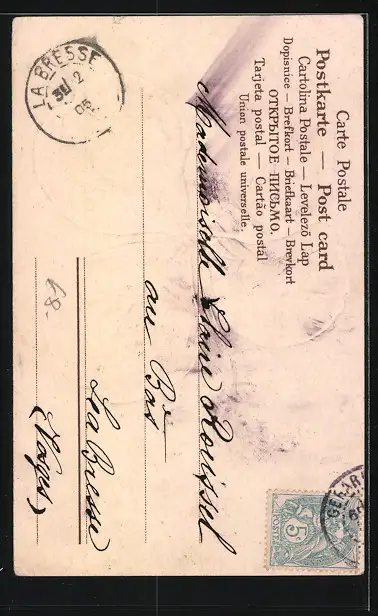 Carte Postale
Postkarte — Post card
Cartolina Postale — Levelező Lap
Dopisnice — Brefkort — Briefkaart — Brevkort
ОТКРЫТОЕ ПИСЬМО.
Tarjeta postal — Cartão postál
Union postale universelle.
LA BRESSE
2
05
Mademoiselle
au Bas
La Bresse
(Vosges)
5c
POSTES
GÉRAR